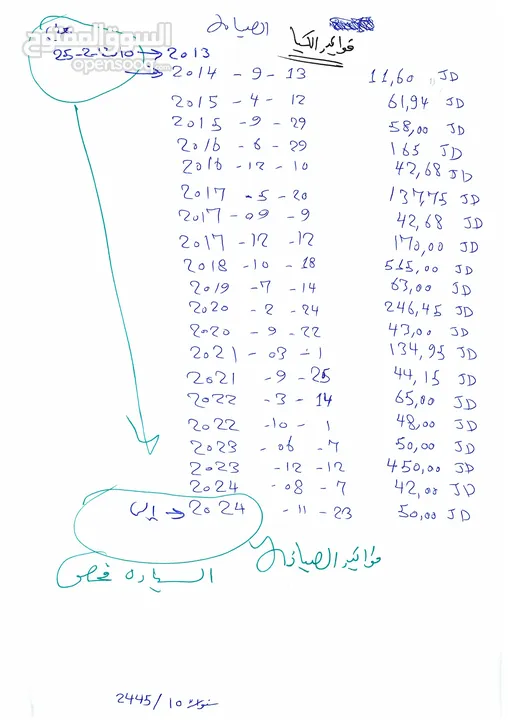 الصيانة
فواتير الكيا
السوق المفتوح
opensooq.com
25-2- → 2013
→ 2014 - 9 - 13 11,60 JD
2015 - 4 - 12 61,94 JD
2015 - 9 - 29 58,00 JD
2016 - 6 - 29 165 JD
2016 - 12 - 10 42,68 JD
2017 - 5 - 20 137,75 JD
2017 - 09 - 9 42,68 JD
2017 - 12 - 12 170,00 JD
2018 - 10 - 18 515,00 JD
2019 - 7 - 14 63,00 JD
2020 - 2 - 24 246,45 JD
2020 - 9 - 22 43,00 JD
2021 - 03 - 1 134,95 JD
2021 - 9 - 25 44,15 JD
2022 - 3 - 14 65,00 JD
2022 - 10 - 1 48,00 JD
2023 - 06 - 7 50,00 JD
2023 - 12 - 12 450,00 JD
2024 - 08 - 7 42,00 JD
إلى → 2024 - 11 - 23 50,00 JD
فواتير الصيانة
السيارة فحص
2445/10 سنوات